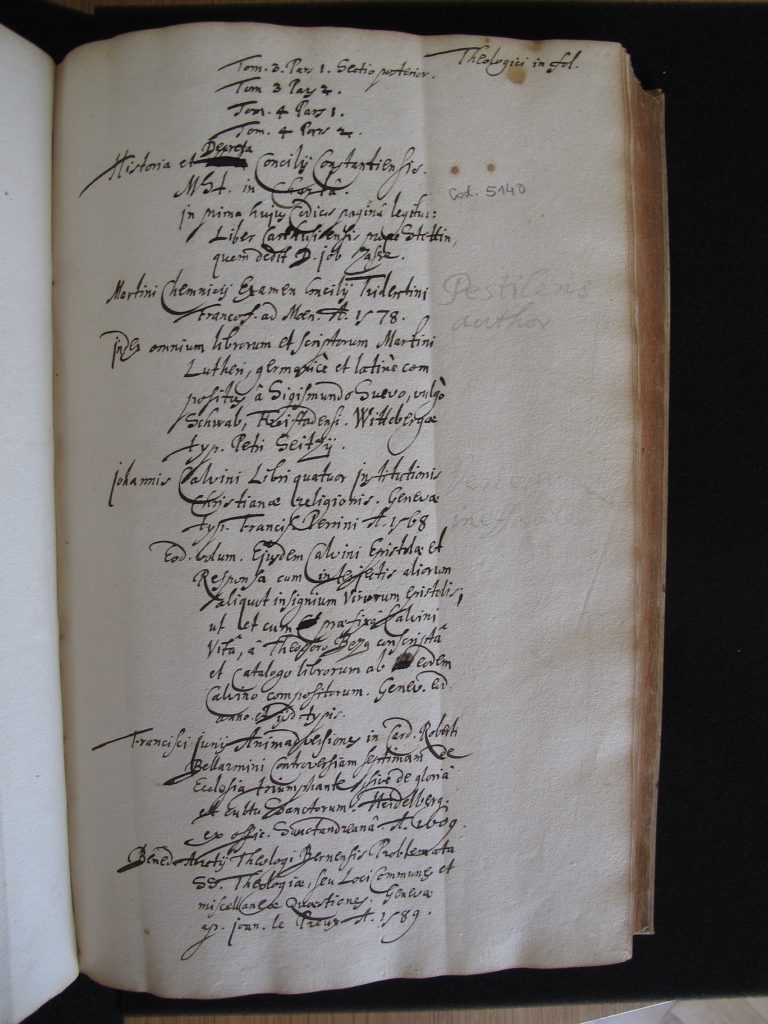 Theologici in fol.
Tom. 3. Pars 1. Sectio posterior.
Tom 3 Pars 2.
Tom. 4 Pars 1.
Tom. 4 Pars 2.
Decreta
Historia et Concilij Constantiensis.
MSt. in Chartâ.
Cod. 5140
in prima hujus Codicis paginâ legitur:
Liber Carthusiensis prope Stettin,
quem dedit D. job
Martini Chemnicij Examen Concilij Tridentini
Francof. ad Mœn. A. 1578.
Pestilens
author
Index omnium librorum et scriptorum Martini
Lutheri, germanicè et latinè com
positus â Sigismundo Suevo, vulgò
Schwab, Freistadensi. Wittebergæ
typ. Petri Seitzij.
johannis Calvini Libri quatuor institutionis
Christianæ religionis. Genevæ
typ. Francisc. Perrini A. 1568
Eod. volum. Ejusdem Calvini Epistolæ et
Responsa cum interjectis aliorum
aliquot insignium Virorum Epistolis,
ut et cum præfixâ Calvini
Vitâ, â Theodoro Beza conscriptâ
et Catalogo librorum ab eodem
Calvino compositorum. Genev. eod.
anno et ijsd. typis.
Francisci junij Animadversiones in Card. Roberti
Bellarmini Controversiam septimam de
Ecclesia triumphante sive de gloriâ
et cultu Sanctorum. Heidelberg.
ex offic. Sanctandreanâ. A. 1609.
Bened. Aretij Theologi Bernensis Problemata
SS. Theologiæ, seu Loci Communes et
miscellaneæ Quæstiones. Genevæ
ap. joan. le Preux A. 1589.